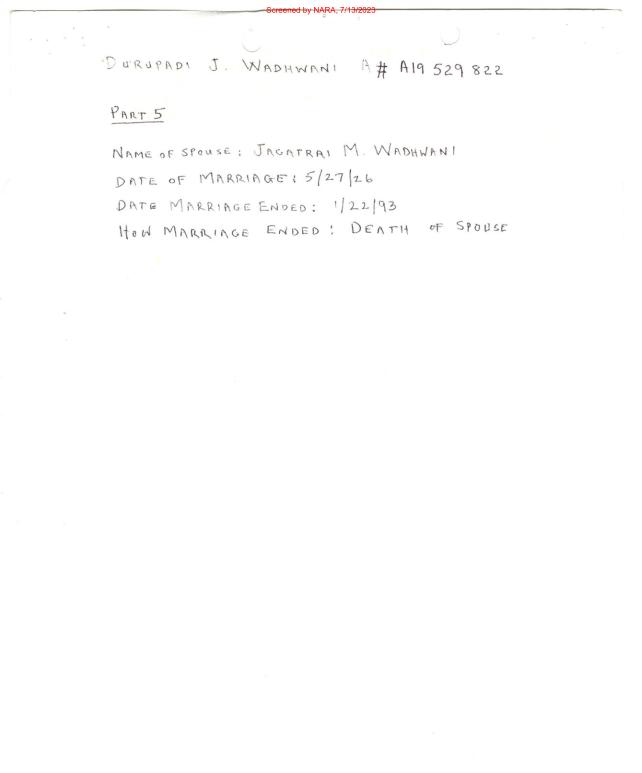 Screened by NARA, 7/13/2023
DURUPADI J. WADHWANI A# A19 529 822
PART 5
NAME OF SPOUSE: JAGATRAI M. WADHWANI
DATE OF MARRIAGE: 5/27/26
DATE MARRIAGE ENDED: 1/22/93
HOW MARRIAGE ENDED: DEATH OF SPOUSE